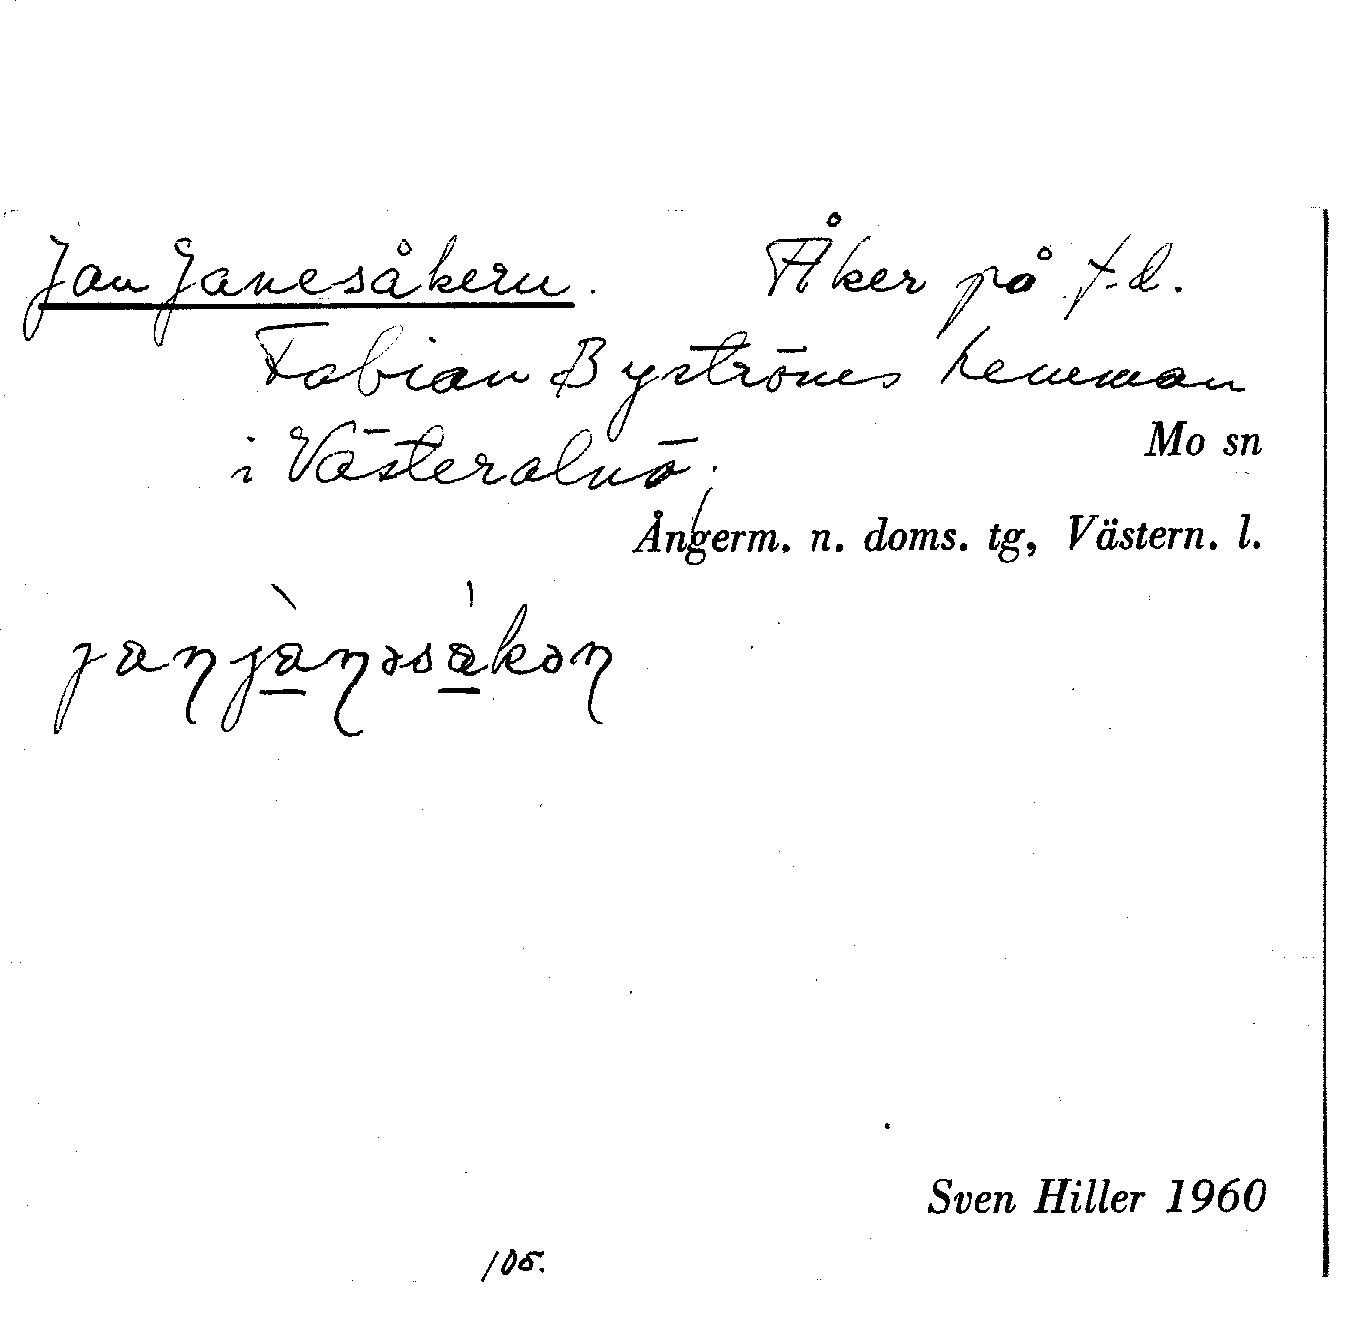 Jan Janesåkern. Åker på f.d.
Fabian Byströms hemman
i Västeralnö.
Mo sn
Ångerm. n. doms. tg, Västern. l.
Sven Hiller 1960
105.